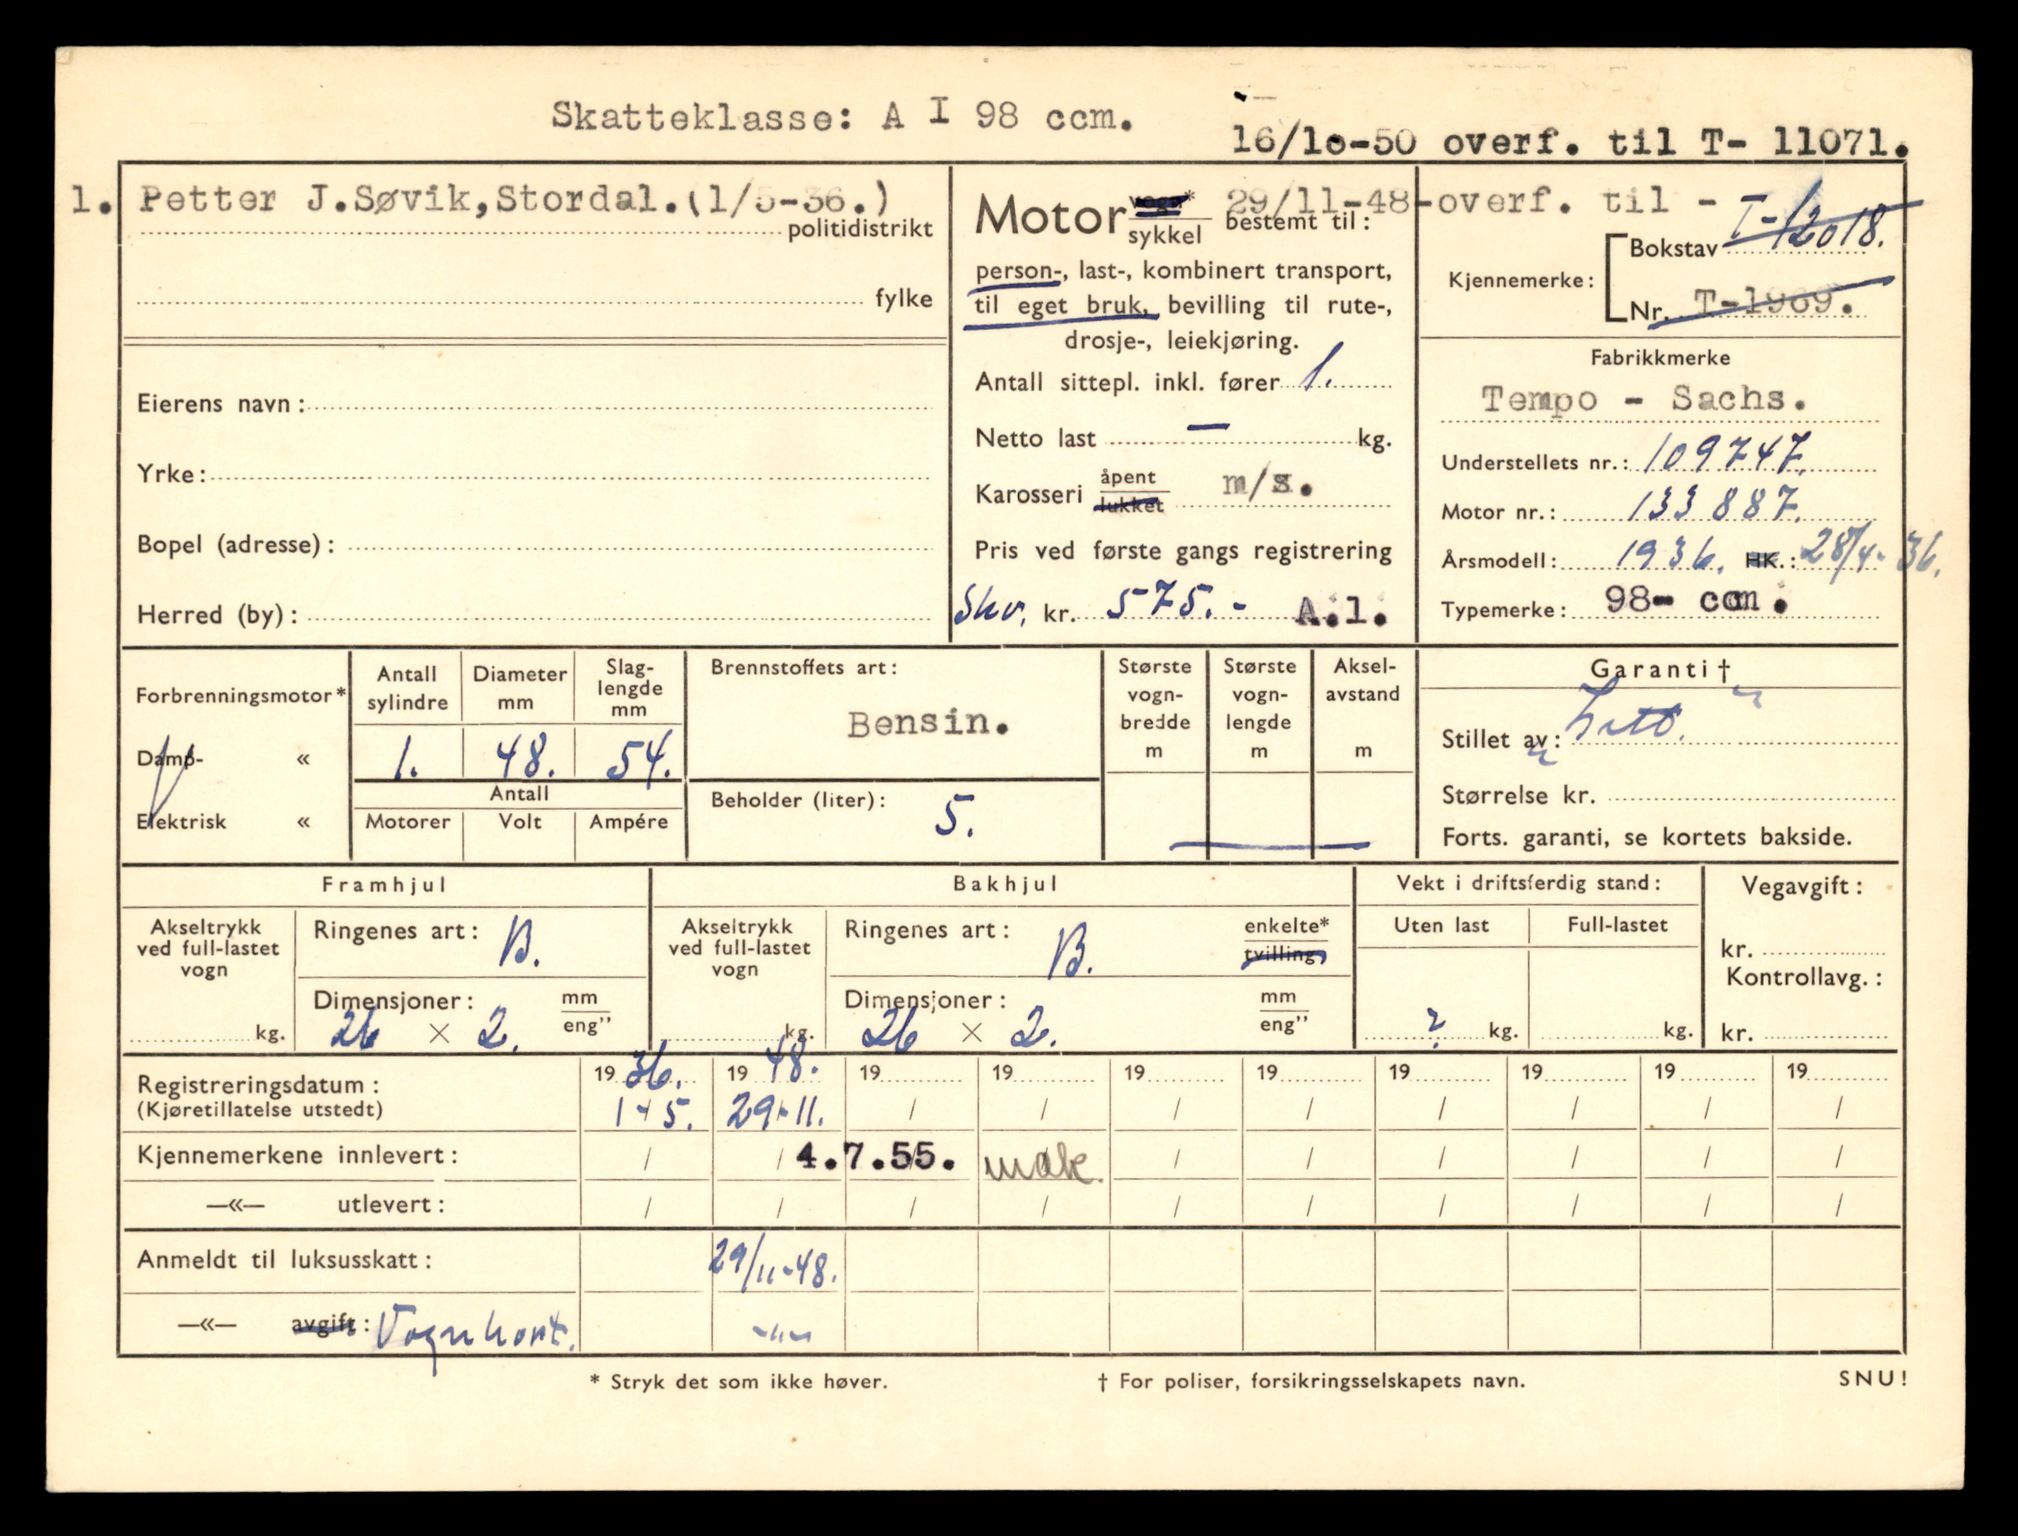 Skatteklasse: A I 98 ccm.
16/10-50 overf. til T- 11071.
1. Petter J.Søvik, Stordal. (1/5-36.)
politidistrikt
fylke
Eierens navn:
Yrke:
Bopel (adresse):
Herred (by):
Motor vogn* sykkel
29/11-48-overf. til - T-12018.
bestemt til:
person-, last-, kombinert transport,
til eget bruk, bevilling til rute-,
drosje-, leiekjøring.
Antall sittepl. inkl. fører 1.
Netto last — kg.
Karosseri åpent lukket m/s.
Pris ved første gangs registrering
Skv. kr. 575.- A.1.
Kjennemerke: Bokstav
Nr. T-1969.
Fabrikkmerke
Tempo - Sachs.
Understellets nr.: 109747.
Motor nr.: 133887.
Årsmodell: 1936. HK.: 28/4-36.
Typemerke: 98- ccm.
Forbrenningsmotor*
Damp- «
Elektrisk «
Antall sylindre
Diameter mm
Slag-lengde mm
1. 48. 54.
Antall
Motorer Volt Ampére
Brennstoffets art:
Bensin.
Beholder (liter): 5.
Største vogn-bredde m
Største vogn-lengde m
Aksel-avstand m
Garanti †
Stillet av:
Størrelse kr.
Forts. garanti, se kortets bakside.
Framhjul
Akseltrykk ved full-lastet vogn
kg.
Ringenes art: B.
Dimensjoner: mm eng”
26 × 2.
Bakhjul
Akseltrykk ved full-lastet vogn
kg.
Ringenes art: B. enkelte* tvilling
Dimensjoner: mm eng”
26 × 2.
Vekt i driftsferdig stand:
Uten last Full-lastet
? kg. kg.
Vegavgift:
kr.
Kontrollavg.:
kr.
Registreringsdatum: 19 36. 19 48. 19 19 19 19 19 19 19 19
(Kjøretillatelse utstedt) 1-5. 29-11. / / / / / / / /
Kjennemerkene innlevert: / / 4.7.55. mak. / / / / / /
—«— utlevert: / / / / / / / / / /
Anmeldt til luksusskatt: 29/11-48.
—«— avgift: Vognkort. -"-
* Stryk det som ikke høver.
† For poliser, forsikringsselskapets navn.
SNU!